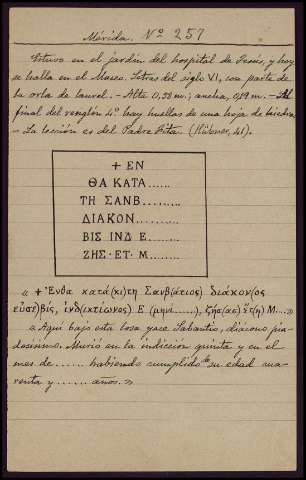 Mérida. Nº 257
Estuvo en el jardín del hospital de Jesús, y hoy
se halla en el Museo. Letras del siglo VI, con parte de
la orla de laurel. - Alto 0,38 m.; ancha, 0,19 m. - Al
final del renglón 4.º hay huellas de una hoja de hiedra.
- La lección es del Padre Fita (Hübner, 41).
+ ΕΝ
ΘΑ ΚΑΤΑ......
ΤΗ ΣΑΝΒ.........
ΔΙΑΚΟΝ..........
ΒΙΣ ΙΝΔ Ε.......
ΖΗΣ·ΕΤ·Μ........
« + Ἔνθα κατά(κι)τη Σανβ(άτιος) διάκον(ος
εὐσε)βίς, ἰνδ(ικτίωνος) Ε (μηνι......), ζήσ(ας) ἔτ(η) Μ....»
« Aquí bajo esta losa yace Sabantio, diácono pia-
dosísimo. Murió en la indicción quinta y en el
mes de ...... habiendo cumplido de su edad cua-
renta y ...... anos. »